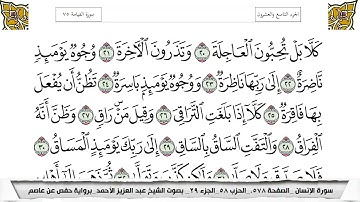 الجزء التاسع والعشرون
سورة القيامة ٧٥
كَلَّا بَلْ تُحِبُّونَ ٱلْعَاجِلَةَ ٢٠ وَتَذَرُونَ ٱلْآخِرَةَ ٢١ وُجُوهٌ يَوْمَئِذٍ
نَّاضِرَةٌ ٢٢ إِلَىٰ رَبِّهَا نَاظِرَةٌ ٢٣ وَوُجُوهٌ يَوْمَئِذٍۭ بَاسِرَةٌ ٢٤ تَظُنُّ أَن يُفْعَلَ
بِهَا فَاقِرَةٌ ٢٥ كَلَّآ إِذَا بَلَغَتِ ٱلتَّرَاقِيَ ٢٦ وَقِيلَ مَنْۜ رَاقٍ ٢٧ وَظَنَّ أَنَّهُ
ٱلْفِرَاقُ ٢٨ وَٱلْتَفَّتِ ٱلسَّاقُ بِٱلسَّاقِ ٢٩ إِلَىٰ رَبِّكَ يَوْمَئِذٍ ٱلْمَسَاقُ ٣٠
سورة الإنسان _ الصفحة ٥٧٨_ الحزب ٥٨_ الجزء ٢٩_ بصوت الشيخ عبد العزيز الاحمد_ برواية حفص عن عاصم